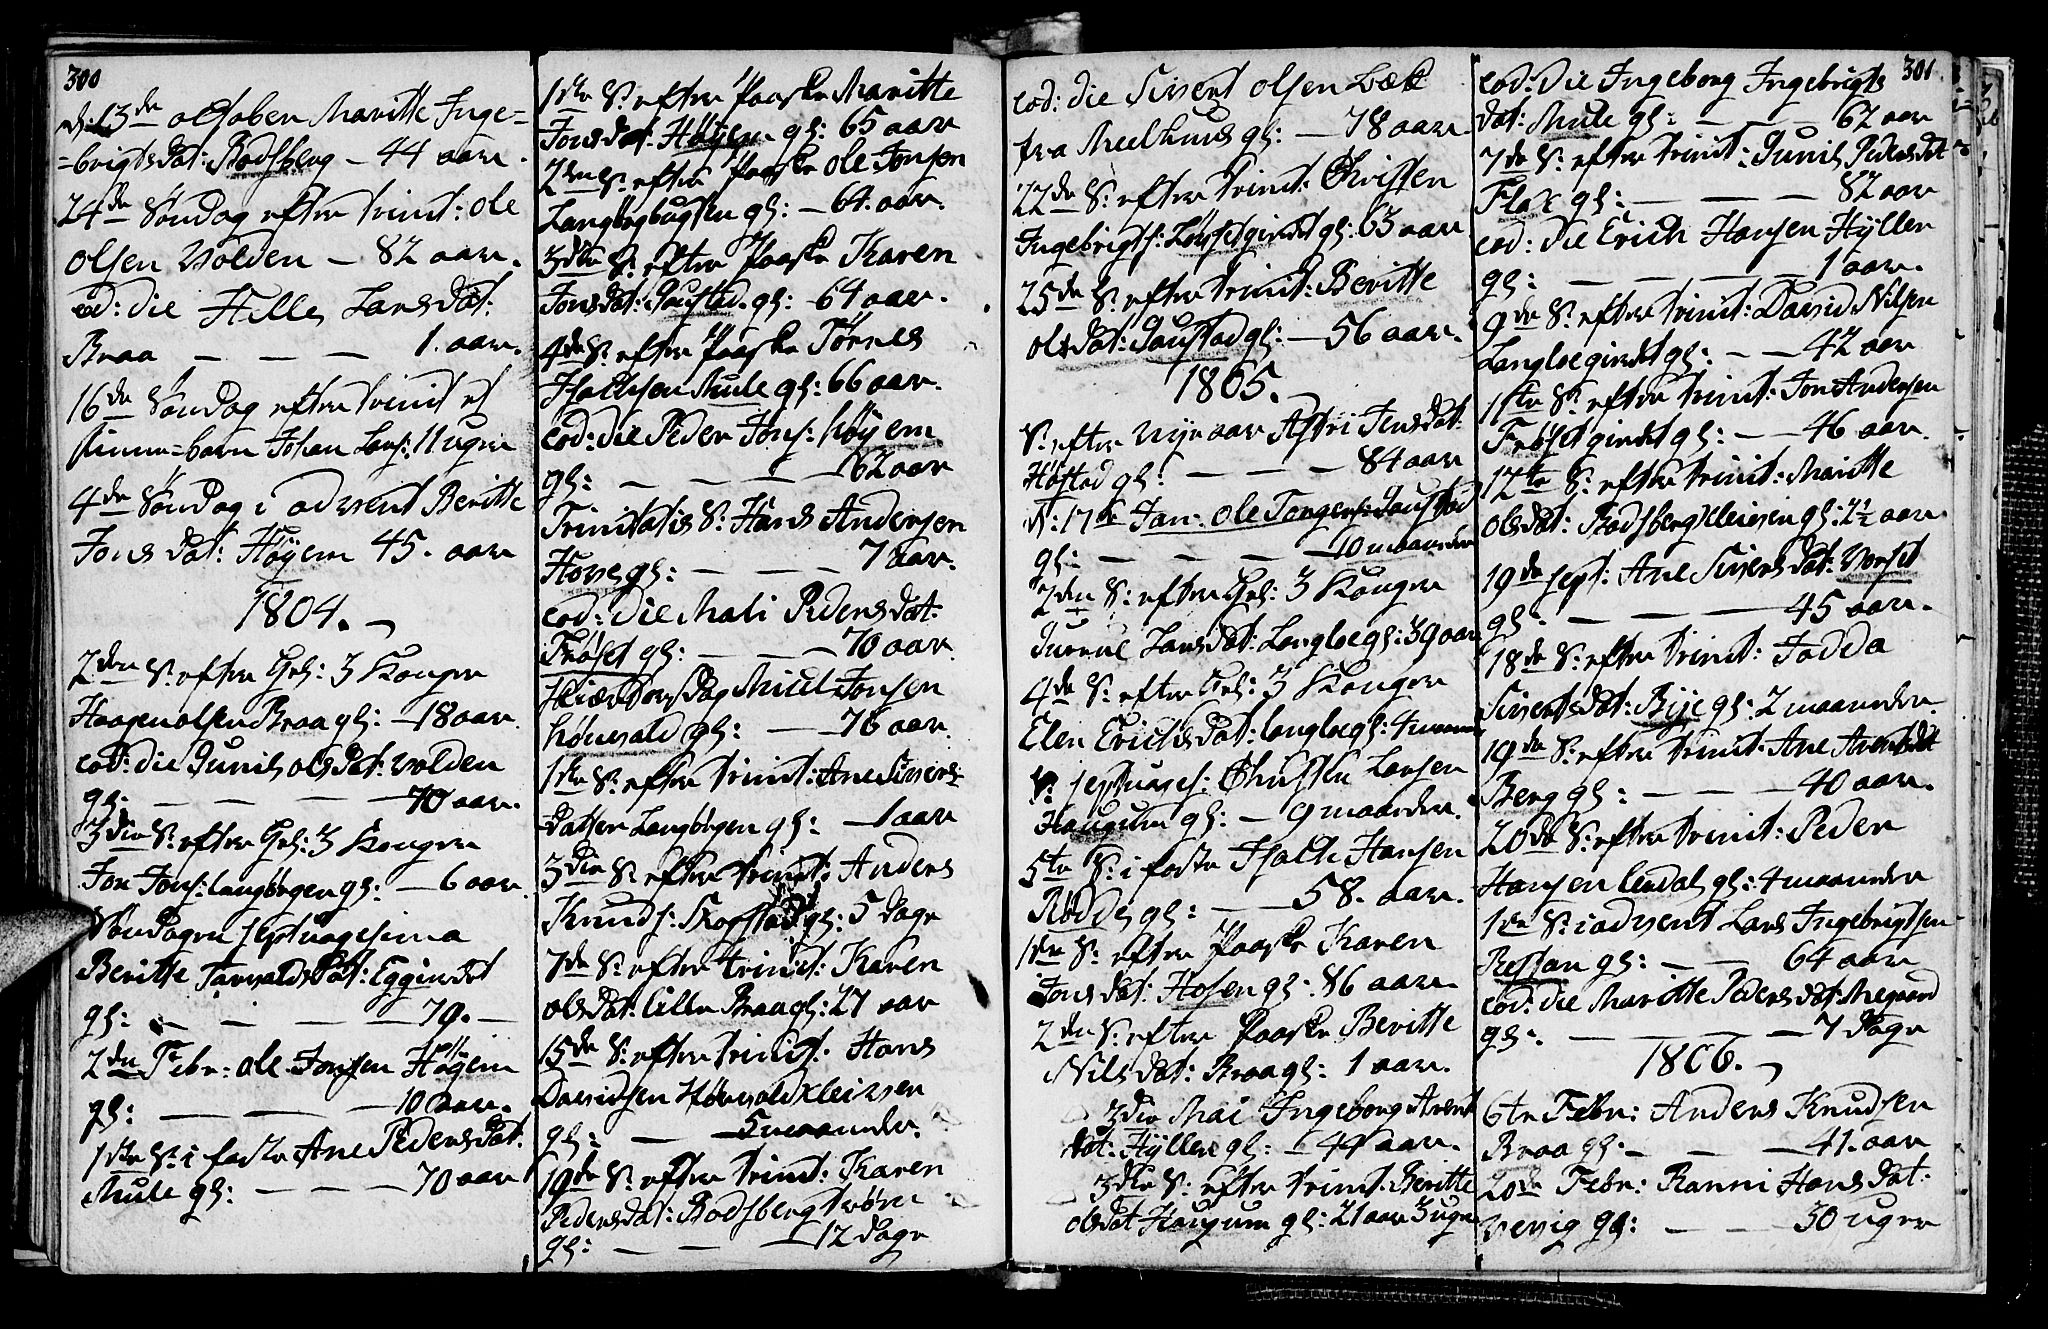 300
d: 13de octoben Maritte Inge=
=brigtsdat: Bodsberg – 44 aar.
24de Söndag efter trinit: ole
olsen Volden – 82 aar.
eod: die Hilles Larsdat:
Braa — — — 1. aar.
16de Söndag efter trinit et
barn Johan Lars: 11 uger
4de Söndag i advent Beritte
Jons dat: Höÿem 45. aar
1804.
2den S: efter Hel: 3 Konger
Haagen olsen Braa gl: – 18 aar.
eod: die Gunil olsdat: volden
gl: — — — — 70 aar.
3die S: efter Hel: 3 Konger
Jon Jons: langörgen gl: – 6 aar.
Söndagen septuagesima
Beritte Tarvaldsdat: Eggindet
gl: — — — — 79. —
2den Febr: ole Jonsen Höÿem
gl: — — — 10 aar.
1ste S: i faste Ane Pedersdat:
Mule gl: — — — 70 aar
1ste S: efter Paaske Maritte
Jonsdat: Höÿem gl: 65 aar
2den S: efter Paaske ole Jonsen
gl: – 64. aar.
3die S: efter Paaske Karen
Jonsdat: Gaustad. gl: – 64 aar.
4de S: efter Paaske Törres
Halthsen Mule gl: 66 aar.
eod: die Peder Jons: höÿem
gl: — — — 62 aar
Trinitatis S: Hans Andersen
Hove gl: — — — 7 aar.
eod: die Mali Pedersdat:
Fröset gl: — — — 70 aar.
Jonsen
hönvald gl: — 76 aar.
1ste S: efter trinit: Ane Sivers=
datter Langörgen gl: – 1 aar
3die S: efter trinit: Anders
Knuds: Skofstad gl: 5 dage
7de S: efter trinit: Karen
olsdat: lille Braa gl: 27 aar
15de S: efter trinit: Hans
Davidsen Hönvald
gl: — — 5 maaneder.
19de S: efter trinit: Karen
Pedersdat: Bodsberg
gl: — — — 12 dage
eod: die Sivert olsen
fra Meelhuus gl: – 78 aar.
22de S: efter trinit: Christen
Ingebrigts: gl: 63 aar
25de S: efter trinit: Beritte
ols dat: Gaustad gl: – 56 aar.
1805.
S: efter nyeaar Astri Jensdat:
Höstad gl: — — — 84 aar
d: 17de Jan: ole Torgers: Gaustad
gl: — — — 10 maaneder
2den S: efter Hel: 3 Konger
Gurrue Larsdat: Langloe gl: 39 aar
4de S: efter Hel: 3 Konger
Elen Erichsdat: langloe gl: 4
S: septuages: Larsen
Haugum gl: – 9 maaneder.
5te S: i faste Halte Hansen
Rödde gl: — 58. aar.
1ste S: efter Paaske Karen
Jons dat: Hosen gl: 86 aar.
2den S: efter Paaske Beritte
Nilsdat: Braa gl: 1 aar.
3die Mai Ingeborg Arent
dat: Hÿllen gl: – 44 aar.
3die S: efter trinit: Beritte
olsdat Haugum gl: 21 aar 3 uger
301.
eod: die Ingeborg Ingebrigts
dat: Mule gl: — — 62 aar
7de S: efter trinit: Gunil Pedersdat
Flax gl: — — — 82 aar
eod: die Erich Hansen Hÿllen
gl: — — — — 1 aar.
9de S: efter trinit: David Nilsen
Langloegindet gl: — – 42 aar
11te S: efter trinit: Jon Andersen
Frösetgindet gl: — – 46 aar.
12te S: efter trinit: Maritte
olsdat: Bodsberg gl: 2½ aar.
19de sept: Ane Siversdat: Vorset
gl: — — — 45 aar.
18de S: efter trinit: Jadda
Sivertsdat: Bÿe gl: 2 maaneder
19de S: efter trinit: Ane Arentsdat
Berg gl: — — — 40 aar.
20de S: efter trinit: Peder
Hansen lerdal gl: 4 maaneder
1ste S: i advent Lars Ingebrigtsen
Restan gl: — — 64 aar
eod: die Maritte Pedersdat: Megaard
gl: — — — – 7 dage
1806.
6te Febr: Anders Knudsen
Braa gl: — — — 41. aar
20de Febr: Ranni Hansdat:
Vevig gl: — — — 30 uger